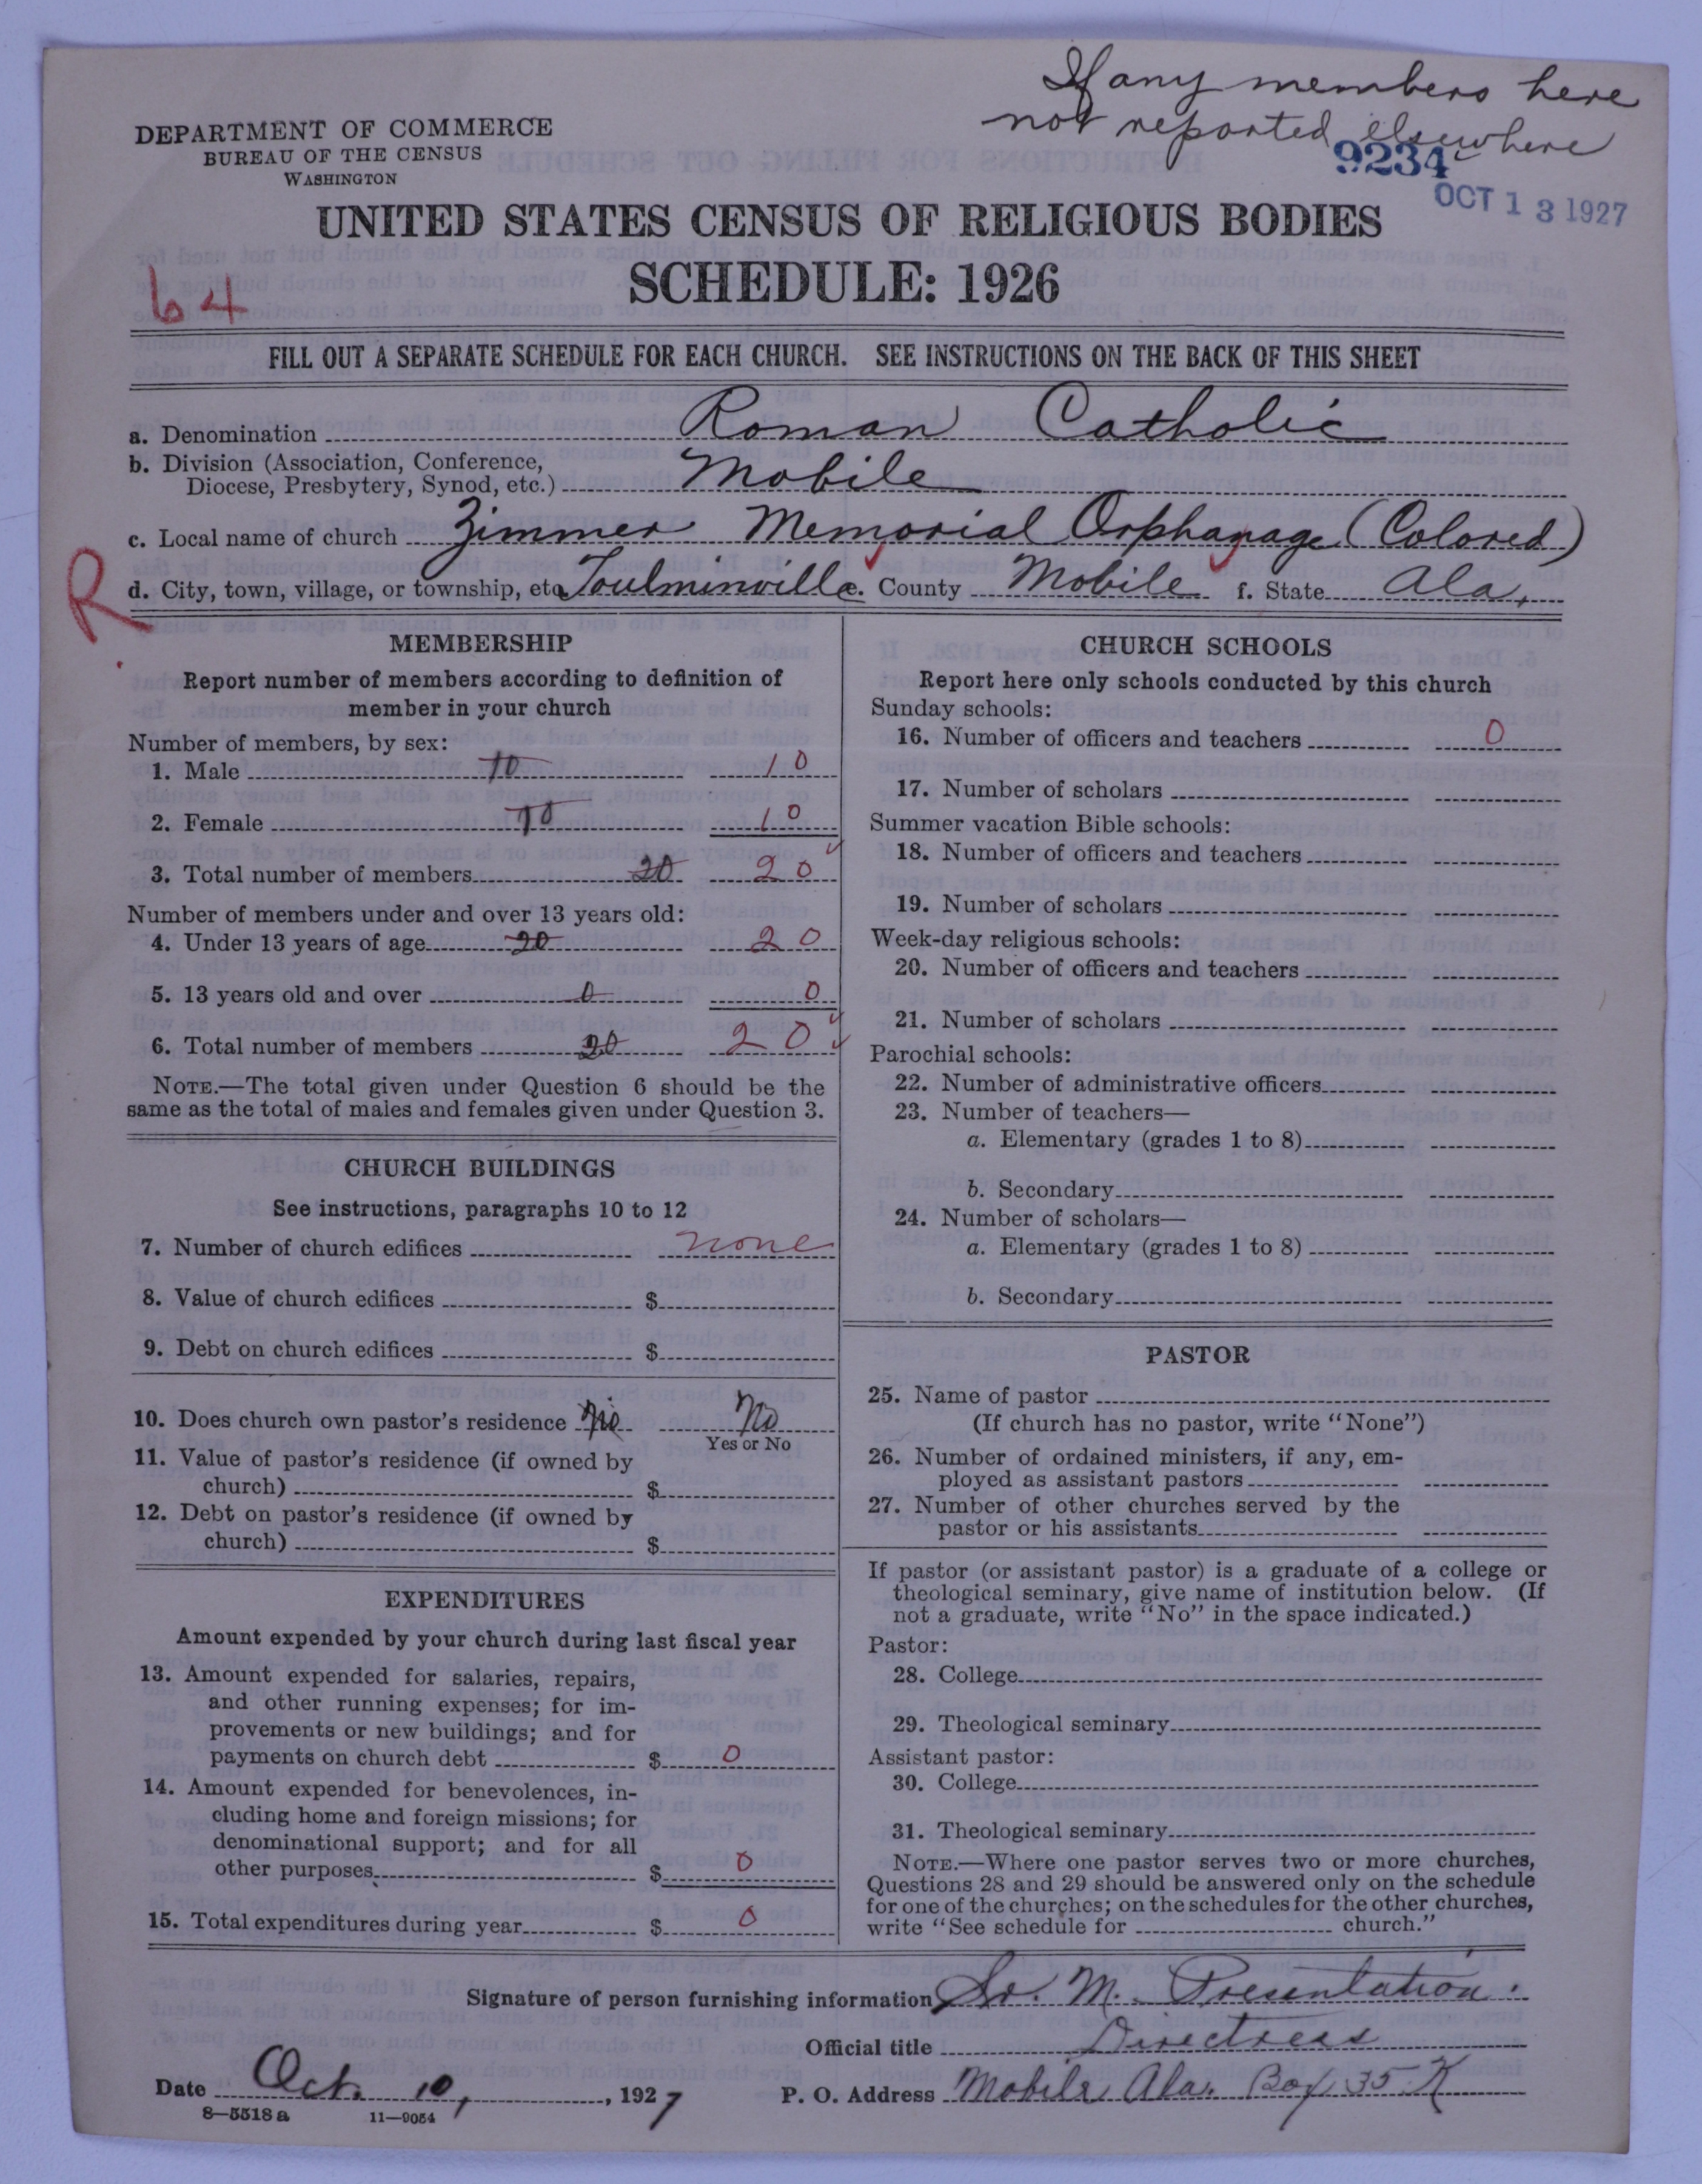 If any members here
not reported elsewhere
DEPARTMENT OF COMMERCE
BUREAU OF THE CENSUS
WASHINGTON
9234
OCT 13 1927
UNITED STATES CENSUS OF RELIGIOUS BODIES
SCHEDULE: 1926
64
FILL OUT A SEPARATE SCHEDULE FOR EACH CHURCH. SEE INSTRUCTIONS ON THE BACK OF THIS SHEET
a. Denomination Roman Catholic
b. Division (Association, Conference,
Diocese, Presbytery, Synod, etc.) Mobile
c. Local name of church Zimmer Memorial Orphanage (Colored)
R
d. City, town, village, or township, etc. Toulminville e. County Mobile f. State Ala.
MEMBERSHIP
Report number of members according to definition of
member in your church
Number of members, by sex:
1. Male 10 10
2. Female 10 10
3. Total number of members 20 20
Number of members under and over 13 years old:
4. Under 13 years of age 20 20
5. 13 years old and over 0 0
6. Total number of members 20 20
NOTE.—The total given under Question 6 should be the
same as the total of males and females given under Question 3.
CHURCH BUILDINGS
See instructions, paragraphs 10 to 12
7. Number of church edifices none
8. Value of church edifices $
9. Debt on church edifices $
10. Does church own pastor's residence No No
Yes or No
11. Value of pastor's residence (if owned by
church) $
12. Debt on pastor's residence (if owned by
church) $
EXPENDITURES
Amount expended by your church during last fiscal year
13. Amount expended for salaries, repairs,
and other running expenses; for im-
provements or new buildings; and for
payments on church debt $ 0
14. Amount expended for benevolences, in-
cluding home and foreign missions; for
denominational support; and for all
other purposes $ 0
15. Total expenditures during year $ 0
CHURCH SCHOOLS
Report here only schools conducted by this church
Sunday schools:
16. Number of officers and teachers 0
17. Number of scholars
Summer vacation Bible schools:
18. Number of officers and teachers
19. Number of scholars
Week-day religious schools:
20. Number of officers and teachers
21. Number of scholars
Parochial schools:
22. Number of administrative officers
23. Number of teachers—
a. Elementary (grades 1 to 8)
b. Secondary
24. Number of scholars—
a. Elementary (grades 1 to 8)
b. Secondary
PASTOR
25. Name of pastor
(If church has no pastor, write "None")
26. Number of ordained ministers, if any, em-
ployed as assistant pastors
27. Number of other churches served by the
pastor or his assistants
If pastor (or assistant pastor) is a graduate of a college or
theological seminary, give name of institution below. (If
not a graduate, write "No" in the space indicated.)
Pastor:
28. College
29. Theological seminary
Assistant pastor:
30. College
31. Theological seminary
NOTE.—Where one pastor serves two or more churches,
Questions 28 and 29 should be answered only on the schedule
for one of the churches; on the schedules for the other churches,
write "See schedule for church."
Signature of person furnishing information Sr. M. Presentation.
Official title Directress
Date Oct. 10, 1927 P. O. Address Mobile Ala. Box 35-K
8—5518 a 11—9054